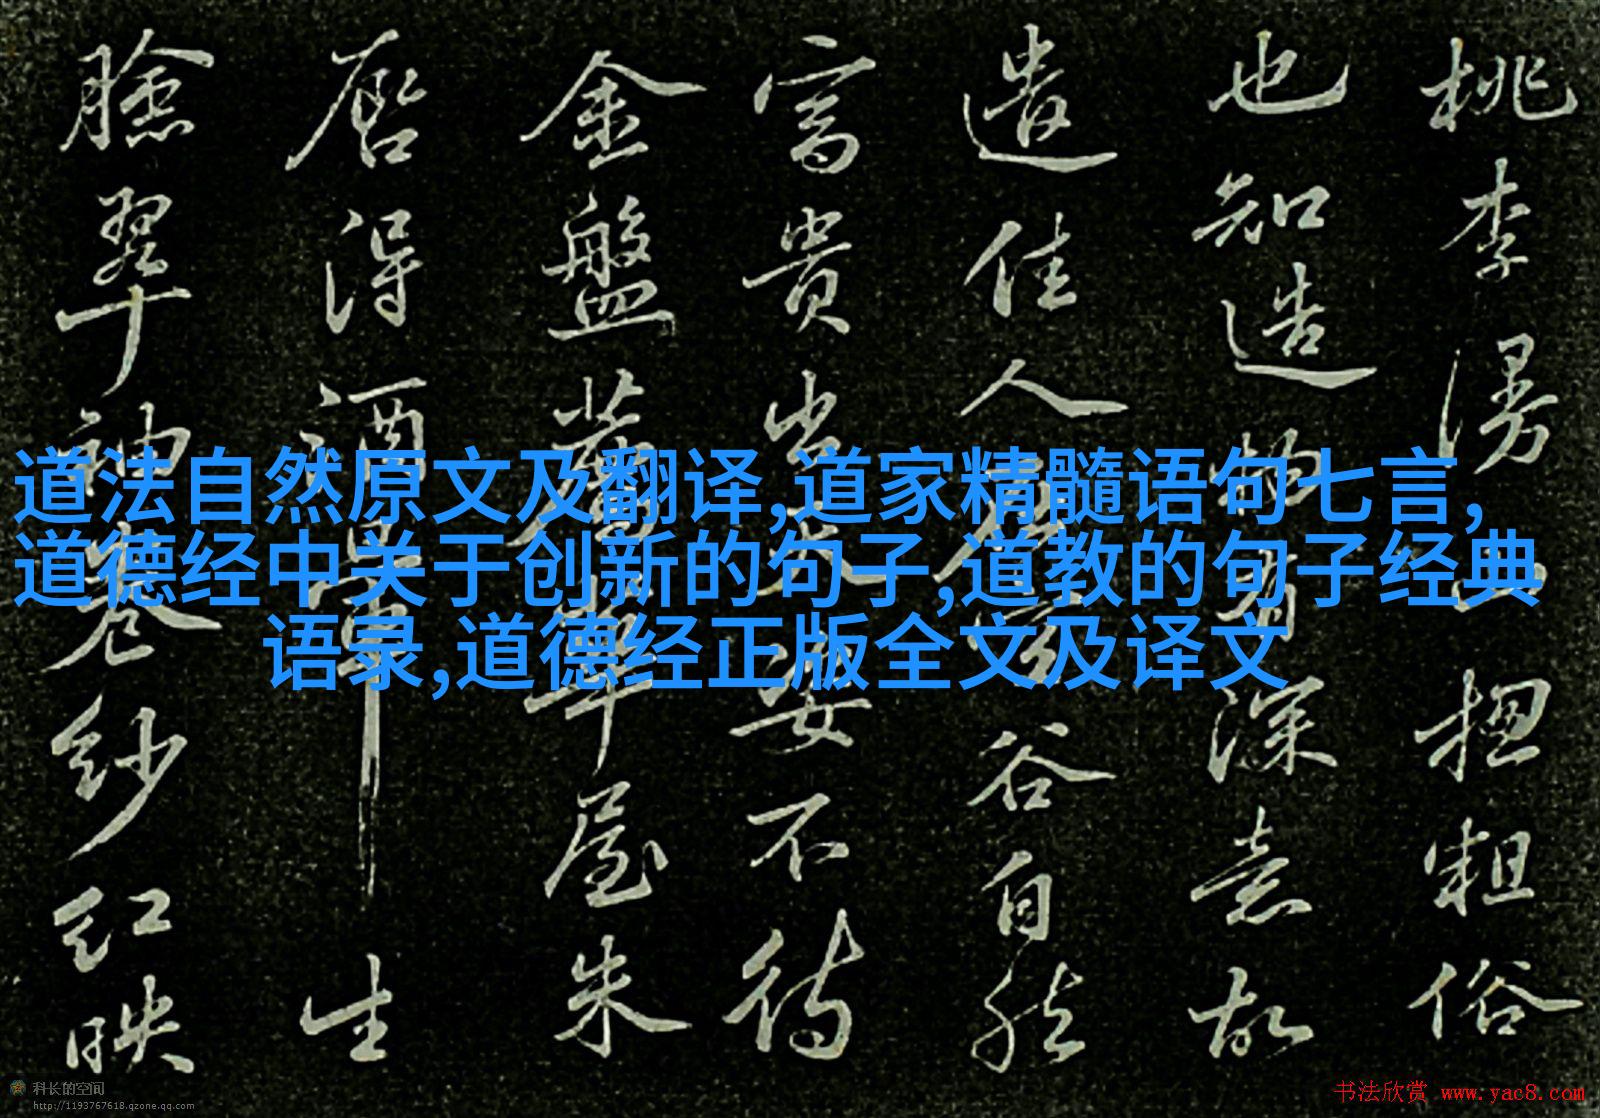 桃李漫山揔粗俗
也知造物有深意故
遣佳人在空谷自然
富貴出天姿不待
金盤薦華屋朱
唇得酒暈生
臉翠袖卷紗紅映
道法自然原文及翻译,道家精髓语句七言,
道德经中关于创新的句子,道教的句子经典
语录,道德经正版全文及译文
科长的空间
http://1193767618.qzone.qq.com
书法欣赏 www.yac8.com